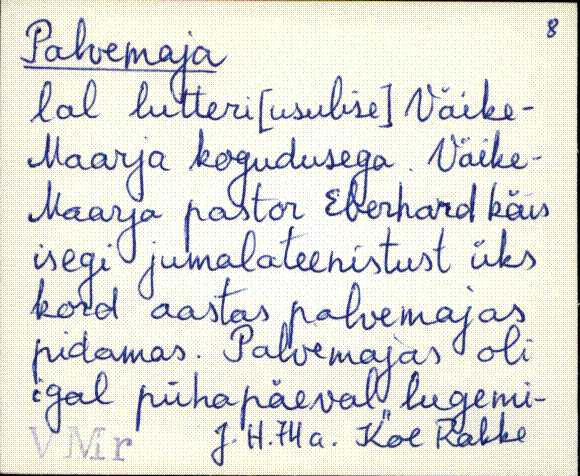 8
Palvemaja
lal lutteri[usulise] Väike-
Maarja kogudusega. Väike-
Maarja pastor Eberhard käis
isegi jumalateenistust üks
kord aastas palvemajas
pidamas. Palvemajas oli
igal pühapäeval lugemi-
VMr J. H. 74 a. Köe Rakke